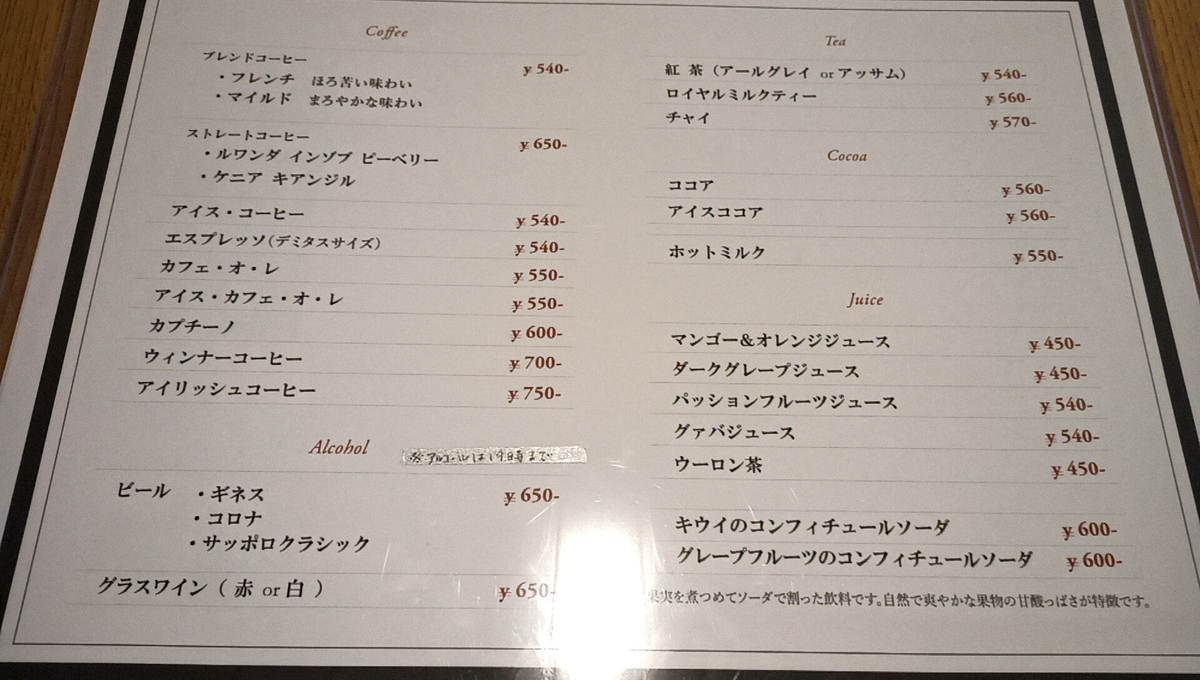 Coffee
ブレンドコーヒー ¥540-
・フレンチ ほろ苦い味わい
・マイルド まろやかな味わい
ストレートコーヒー ¥650-
・ルワンダ インゾブ ピーベリー
・ケニア キアンジル
アイス・コーヒー ¥540-
エスプレッソ(デミタスサイズ) ¥540-
カフェ・オ・レ ¥550-
アイス・カフェ・オ・レ ¥550-
カプチーノ ¥600-
ウィンナーコーヒー ¥700-
アイリッシュコーヒー ¥750-
Alcohol ※アルコールは19時まで
ビール ・ギネス ¥650-
・コロナ
・サッポロクラシック
グラスワイン ( 赤 or 白 ) ¥650-
Tea
紅 茶 (アールグレイ or アッサム) ¥540-
ロイヤルミルクティー ¥560-
チャイ ¥570-
Cocoa
ココア ¥560-
アイスココア ¥560-
ホットミルク ¥550-
Juice
マンゴー&オレンジジュース ¥450-
ダークグレープジュース ¥450-
パッションフルーツジュース ¥540-
グァバジュース ¥540-
ウーロン茶 ¥450-
キウイのコンフィチュールソーダ ¥600-
グレープフルーツのコンフィチュールソーダ ¥600-
果実を煮つめてソーダで割った飲料です。自然で爽やかな果物の甘酸っぱさが特徴です。